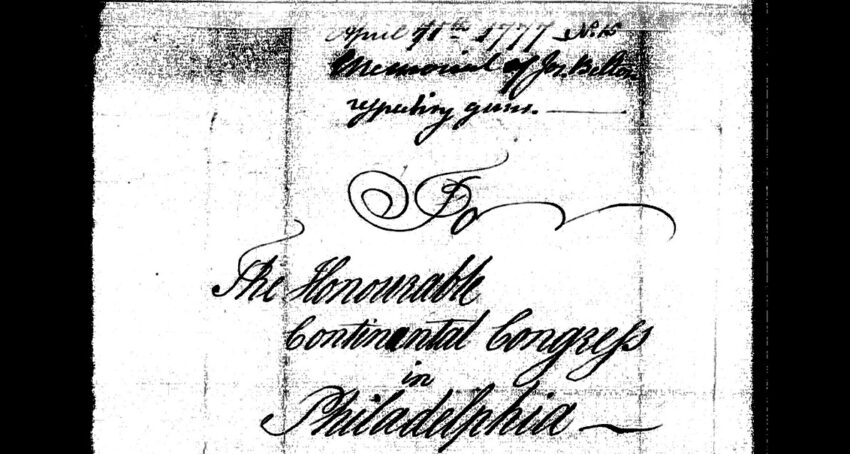 April 11th 1777
Memorial of Jos. Belton
respecting guns.
To
The Honourable
Continental Congreſs
in
Philadelphia